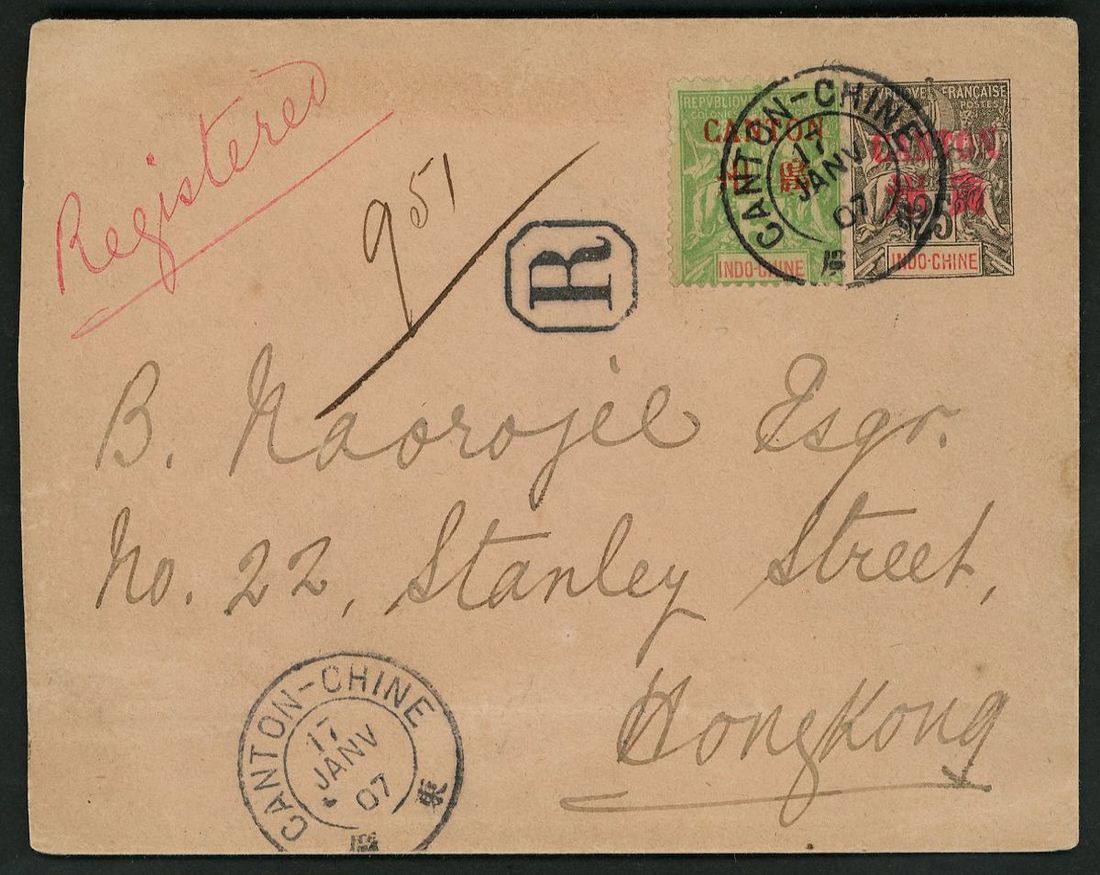 Registered
951
R
REPVBLIQVE
CANTON
INDO-CHINE
REPVBLIQVE FRANÇAISE
POSTES
CANTON
25
INDO-CHINE
CANTON-CHINE
17
JANV
07
B. Naorojee Esqr.
No. 22, Stanley Street,
Hongkong
CANTON-CHINE
17
JANV
07
東